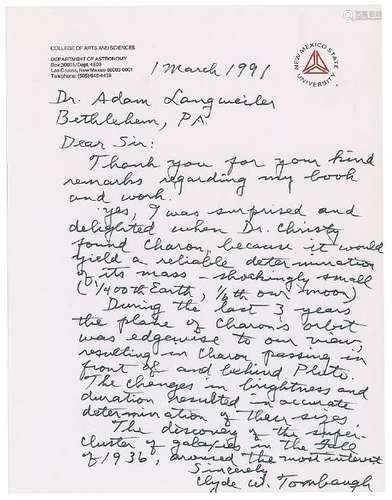 COLLEGE OF ARTS AND SCIENCES
DEPARTMENT OF ASTRONOMY
Box 30001/Dept. 4500
Las Cruces, New Mexico 88003-0001
Telephone: (505) 646-4438
NEW MEXICO STATE UNIVERSITY
1 March 1991
Dr. Adam Langweiler
Bethlehem, PA
Dear Sir:
Thank you for your kind
remarks regarding my book
and work.
Yes, I was surprised and
delighted when Dr. Christy
found Charon, because it would
yield a reliable determination
of its mass – shockingly small
(1/400th Earth, 1/6th our moon)
During the last 3 years
the plane of Charon's orbit
was edgewise to our view,
resulting in Charon passing in
front of and behind Pluto.
The changes in brightness and
duration resulted in accurate
determination of their sizes
The discovery of the super-
cluster of galaxies in the
of 1936, aroused the most interest
Sincerely
Clyde W. Tombaugh